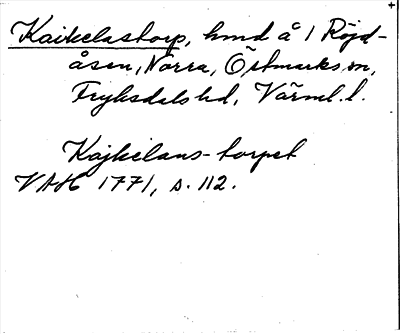 Kaikelastorp, hmd å 1 Röjd-
åsen, Norra, Östmarks sn,
Fryksdals hd, Värml. l.
Kajkelans-torpet
VAH 1771, s. 112.